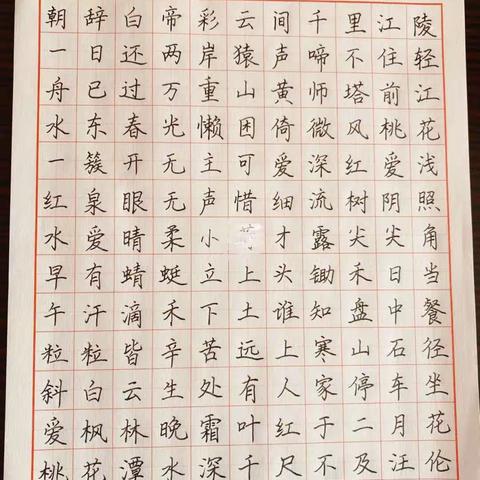 朝辞白帝彩云间千里江陵
一日还两岸猿声啼不住轻
舟已过万重山黄师塔前江
水东春光懒困倚微风桃花
一簇开无主可爱深红爱浅
红泉眼无声惜细流树阴照
水爱晴柔小才露尖尖角
早有蜻蜓立上头锄禾日当
午汗滴禾下土谁知盘中餐
粒粒皆辛苦远上寒山石径
斜白云生处有人家停车坐
爱枫林晚霜叶红于二月花
桃花潭水深千尺不及汪伦